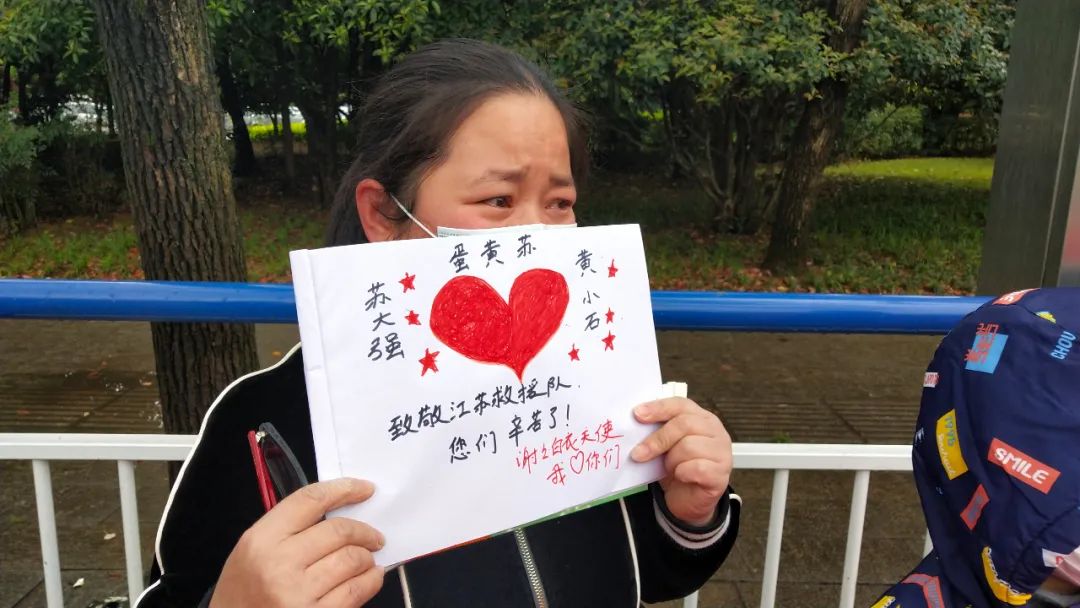 蛋黄苏
苏大强
黄小石
致敬江苏救援队.
您们 辛苦了!
谢谢白衣天使
我♡你们
SMILE
CHOU